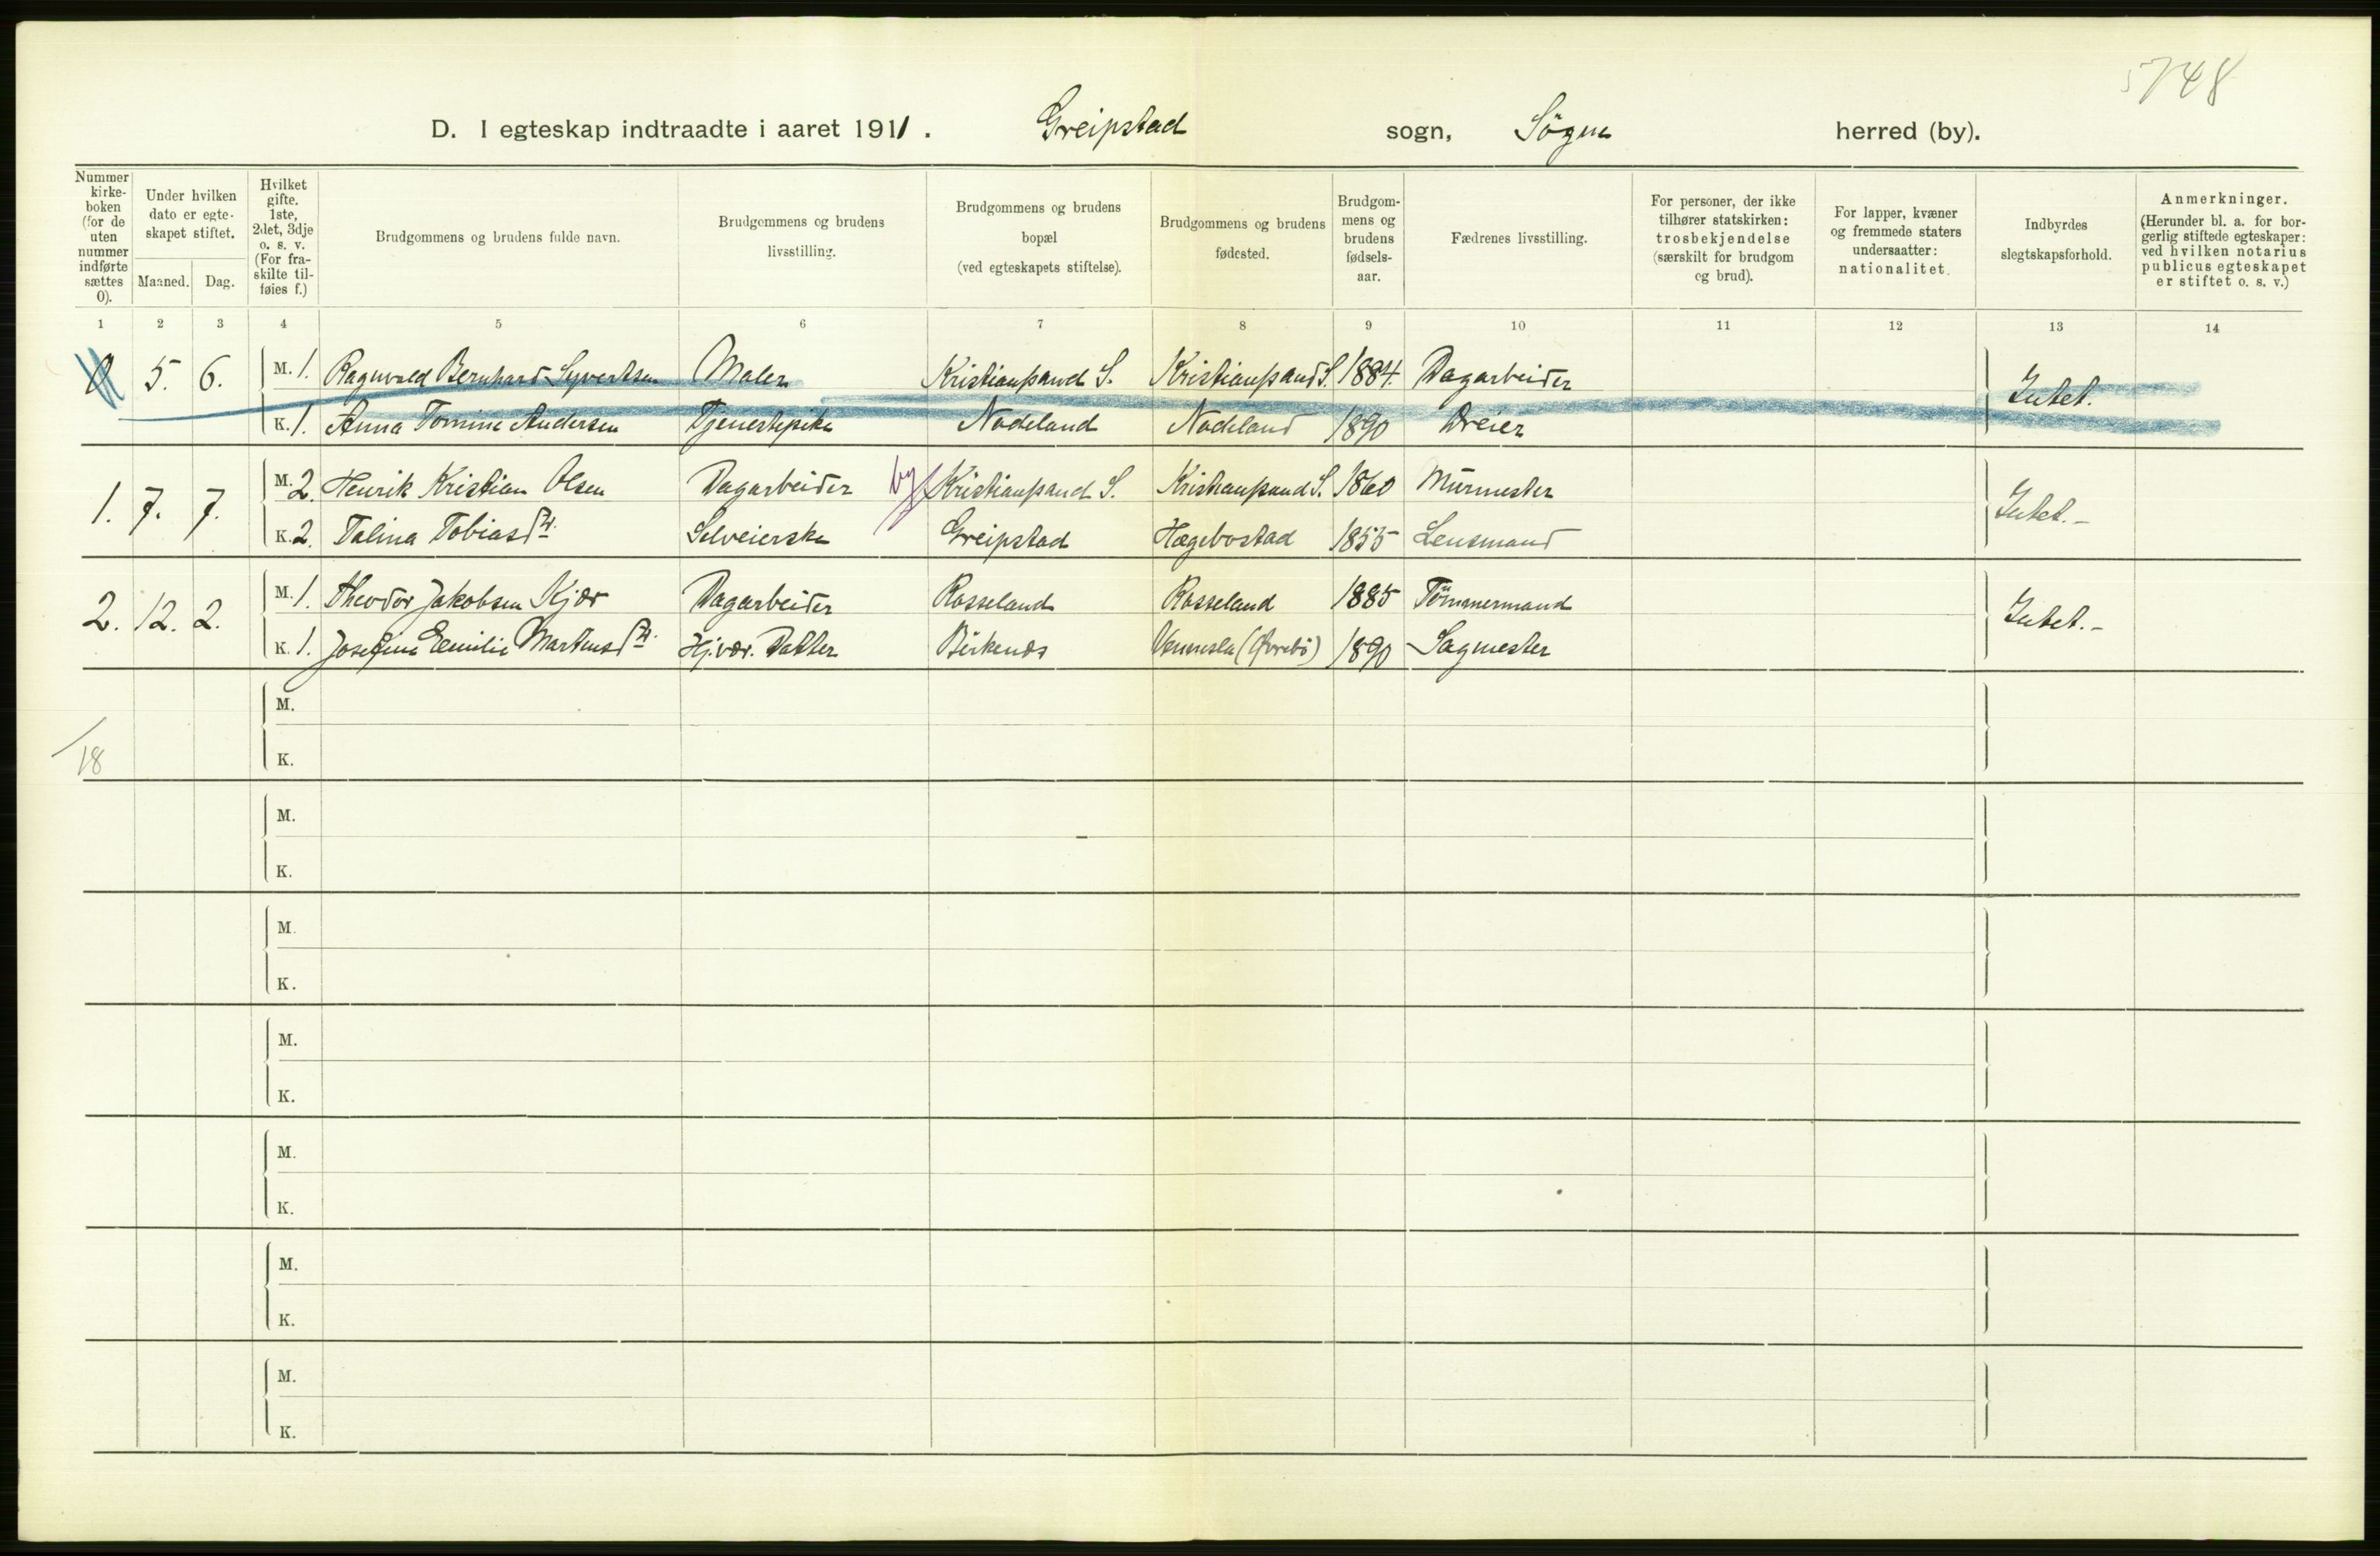 5748
D. I egteskap indtraadte i aaret 1911. Greipstad sogn, Søgne herred (by).
Nummer kirke- boken (for de uten nummer indførte sættes 0).
Under hvilken dato er egte- skapet stiftet.
Maaned. Dag.
Hvilket gifte. 1ste, 2det, 3dje o. s. v. (For fra- skilte til- føies f.)
Brudgommens og brudens fulde navn.
Brudgommens og brudens livsstilling.
Brudgommens og brudens bopæl (ved egteskapets stiftelse).
Brudgommens og brudens fødested.
Brudgom- mens og brudens fødsels- aar.
Fædrenes livsstilling.
For personer, der ikke tilhører statskirken: trosbekjendelse (særskilt for brudgom og brud).
For lapper, kvæner og fremmede staters undersaatter: nationalitet.
Indbyrdes slegtskapsforhold.
Anmerkninger. (Herunder bl. a. for bor- gerlig stiftede egteskaper: ved hvilken notarius publicus egteskapet er stiftet o. s. v.)
1 2 3 4 5 6 7 8 9 10 11 12 13 14
0 5. 6. M. 1. Ragnvald Bernhard Syvertsen Maler Kristianssand S. Kristianssand S. 1884. Dagarbeider Intet.
K. 1. Anna Tomine Andersen Tjenestepike Nodeland Nodeland 1890 Dreier
1. 7. 7. M. 2. Henrik Kristian Olsen Dagarbeider by Kristianssand S. Kristianssand S. 1860 Murmester Intet.-
K. 2. Talina Tobiasdtr. Selveierske Greipstad Hægebostad 1855 Lensmand
2. 12. 2. M. 1. Theodor Jakobsen Kjær Dagarbeider Rosseland Rosseland 1885 Tömmermand Intet.-
K. 1. Josefine Emilie Martensdtr. Hj.vær. Datter Birkenes Vennesla (Øvrebö) 1890 Sagmester
M.
18
K.
M.
K.
M.
K.
M.
K.
M.
K.
M.
K.
M.
K.